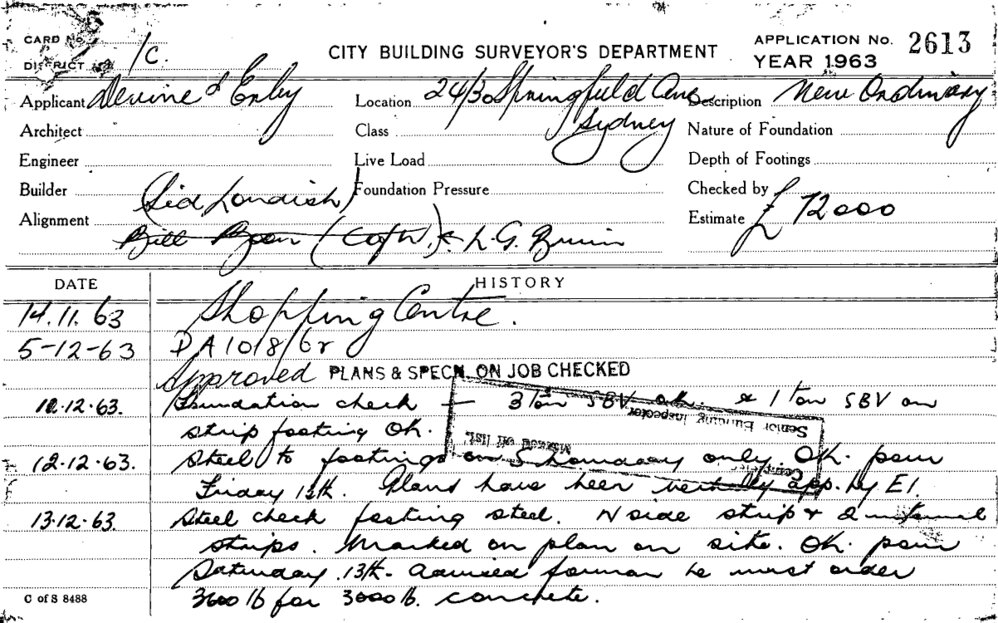 CARD No.
DISTRICT 1C.
CITY BUILDING SURVEYOR'S DEPARTMENT
APPLICATION No. 2613
YEAR 1963
Applicant Devine & Erby
Location 24/30 Springfield Ave
Sydney
Description New Ordinary
Architect
Class
Nature of Foundation
Engineer
Live Load
Depth of Footings
Builder (Sid Londish)
Foundation Pressure
Checked by
Alignment
Estimate £ 72000
Bill (Cofw.) L. G.
DATE HISTORY
14.11.63 Shopping Centre.
5-12-63 DA 1018/62
Approved PLANS & SPECN. ON JOB CHECKED
10.12.63. Foundation check — 3 ton SBV ok. & 1 ton SBV on
strip footing Ok.
Senior Building Inspector
Marked off list.
12.12.63. Steel to footings on S boundary only. Ok. pour
Friday 13th. Plans have been verbally app. by E1.
13.12.63. Steel check footing steel. N side strip & 2 internal
strips. Marked on plan on site. Ok. pour
Saturday 13th. Advised forman he must order
3600 lb for 3000 lb. concrete.
C of S 8488